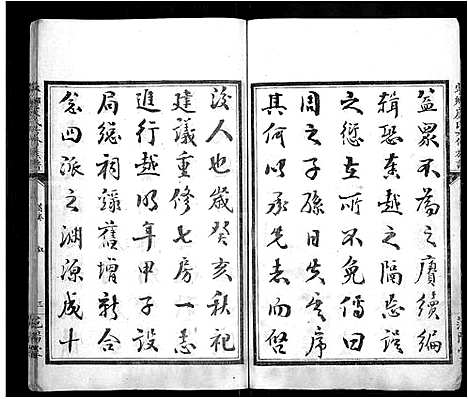 益眾不為之賡續編
輯恐秦越之隔忘誤
之愆在所不免儒曰
周之子孫日失其序
其何以承先志而啓
後人也歲癸亥秋祀
建議重修七房一志
進行越明年甲子設
局總祠錄舊增新合
念四派之淵源成十